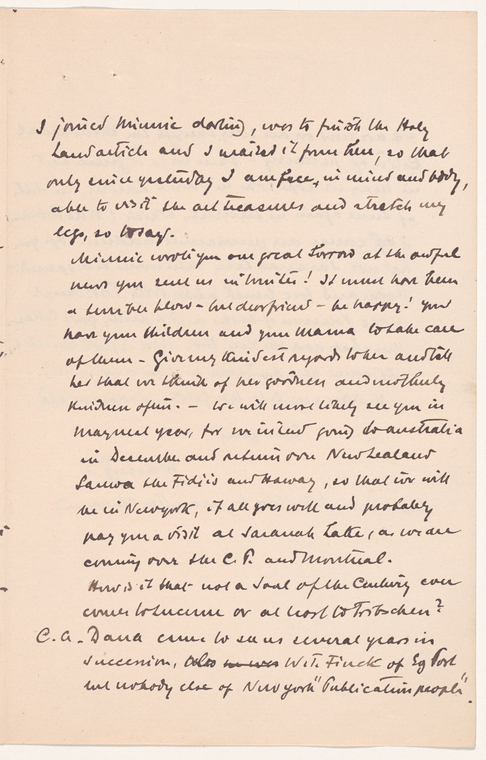 I joined Minnie darling, was to finish the Holy
Land article and I mailed it from there, so that
only since yesterday I am free, in mind and body,
able to visit the art treasures and stretch my
legs, so to say.
Minnie wrote you our great sorrow at the awful
news you sent us in writes! It must have been
a terrible blow - but dear friend - be happy! you
have your children and your Mama to take care
of them - Give my kindest regards to her and tell
her that we think of her goodness and motherly
kindness often. - We will most likely see you in
May next year, for we intend going to Australia
in December and return over New Zealand
Samoa the Fidjis and Haway, so that we will
be in New York, if all goes well and probably
pay you a visit at Saranak Lake, as we are
coming over the C.P. and Montreal.
How is it that not a soul of the Century ever
comes to Lucerne or at least to Tribschen?
C.A. Dana came to see us several years in
succession, W.T. Finck of Eg Post
but nobody else of New York "Publication people".